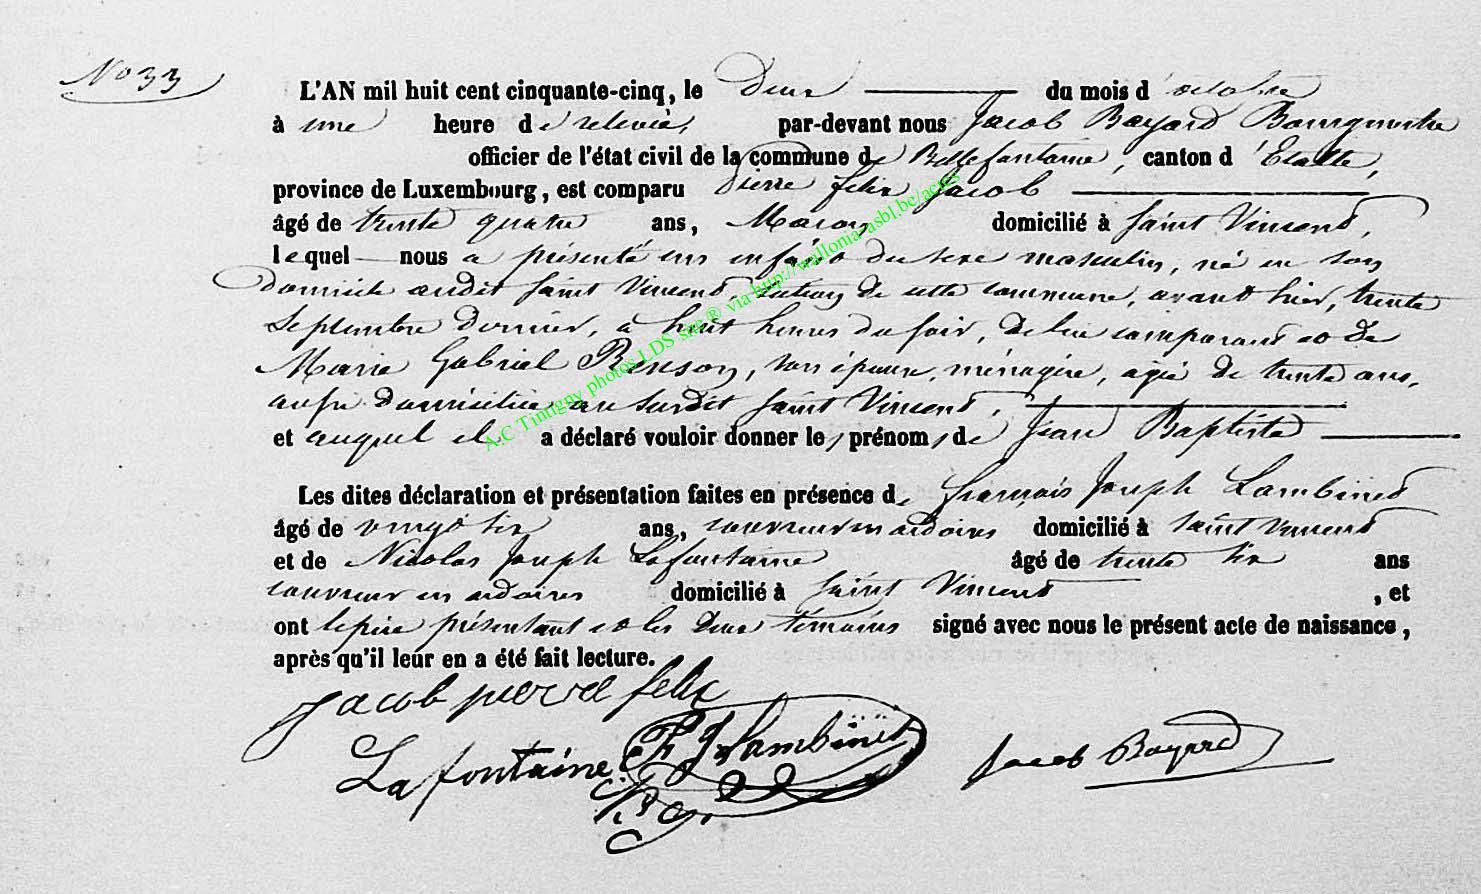 No 33
L'AN mil huit cent cinquante-cinq, le Deux du mois d'octobre
à une heure de relevée, par-devant nous Jacob Bayard Bourgmestre
officier de l'état civil de la commune de Bellefontaine, canton d'Etalle,
province de Luxembourg, est comparu Pierre felix Jacob
âgé de trente quatre ans, Maçon domicilié à Saint Vincent,
lequel nous a présenté un enfant du sexe masculin, né en son
Domicile audit Saint Vincent, section de cette commune, avant hier, trente
Septembre dernier, à huit heures du soir, de lui comparant et de
Marie Gabriel Renson, son épouse, ménagère, agée de trente ans,
aussi domiciliée au susdit Saint Vincent,
et auquel il a déclaré vouloir donner les prénoms de Jean Baptiste
Les dites déclaration et présentation faites en présence de françois Joseph Lambinet
âgé de vingt six ans, couvreur en ardoises domicilié à Saint Vincent
et de Nicolas Joseph Lafontaine âgé de trente six ans
couvreur en ardoises domicilié à Saint Vincent, et
ont le père présentant et les deux témoins signé avec nous le présent acte de naissance,
après qu'il leur en a été fait lecture.
Jacob pierre felix
Lafontaine F J Lambinet Jacob Bayard
A.C Tintigny photos LDS sae ® via http://wallonia-asbl.be/actes